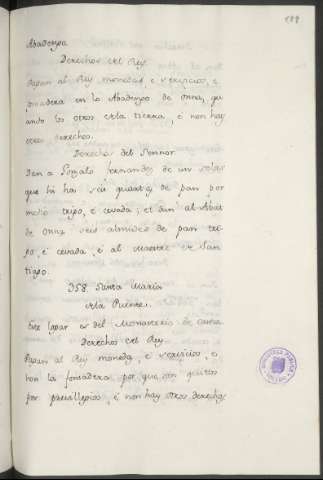 189
Abadengo
Derechos del Rey
Pagan al Rey monedas, e servicios, e
fonsadera en lo Abadengo de onna, qu
ando los otros dela tierra, é non hay
otros derechos.
Derechos del Sennor
Dan a Gonzalo fernandez de un solar
que hi has seis quartas de pan por
medio trigo, é cevada; et dan al Abat
de onna seis almudes de pan tri
go, é cevada, é al Maestre de San
tiago.
358. Santa Maria
dela Puente.
Este logar es del Monasterio de
Derechos del Rey
Pagan al Rey moneda, é servicios, é
non la fonsadera por que son quitos
por previllegios, é non hay otros derechos